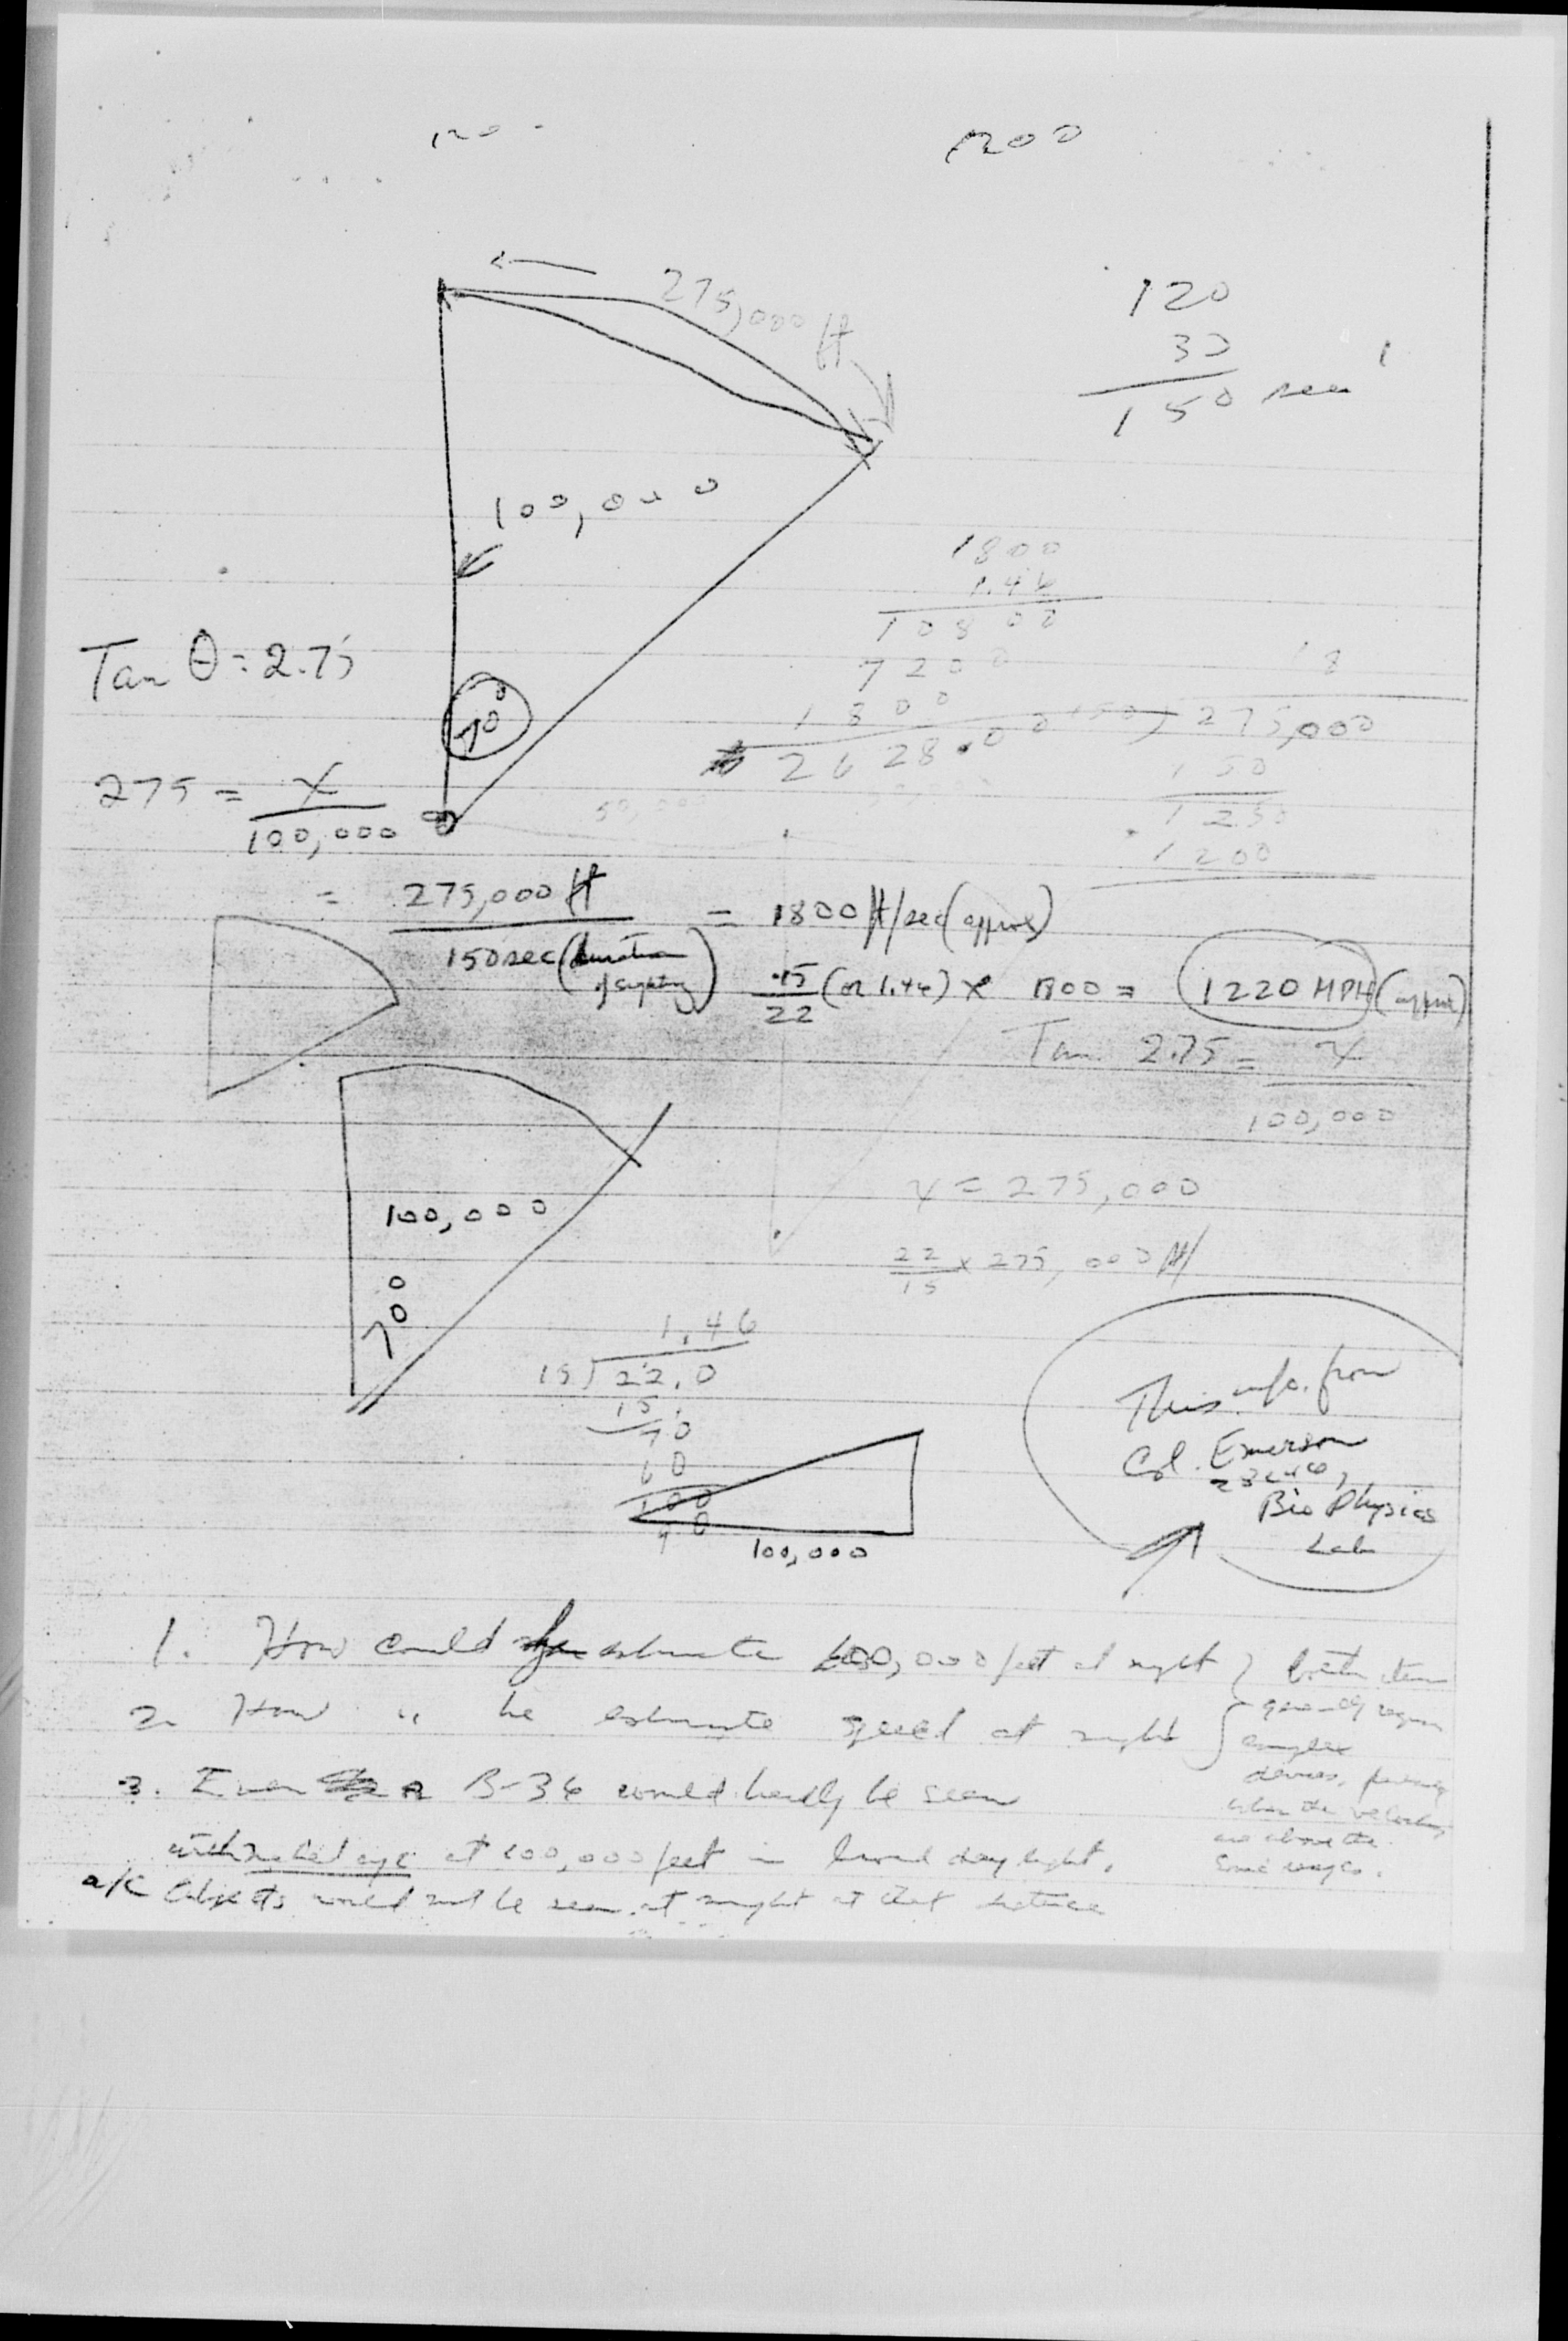 1200
275,000 ft
120
30
150 sec
100,000
1800
1.46
10800
7200
1800
2628.00
Tan θ = 2.75
70°
18
150) 275,000
150
1250
1200
275 = X
100,000
50,000
= 275,000 ft = 1800 ft/sec (approx)
150 sec (duration of sighting)
15 (or 1.46) x 1800 = 1220 MPH (approx)
22
Tan 2.75 = X
100,000
100,000
70°
X = 275,000
22 x 275,000 ft/
15
1.46
15) 22.0
15
70
60
100
90
100,000
This info. from
Col. Emerson
Bio Physics
Lab
1. How could estimate 100,000 feet at night } both items
2. How " he estimate speed at night generally require
complex
devices,
3. Even a B-36 would hardly be seen
when the velocities
with naked eye at 100,000 feet in broad daylight.
are above the
Sonic ranges.
a/c Objects would not be seen at night at that distance